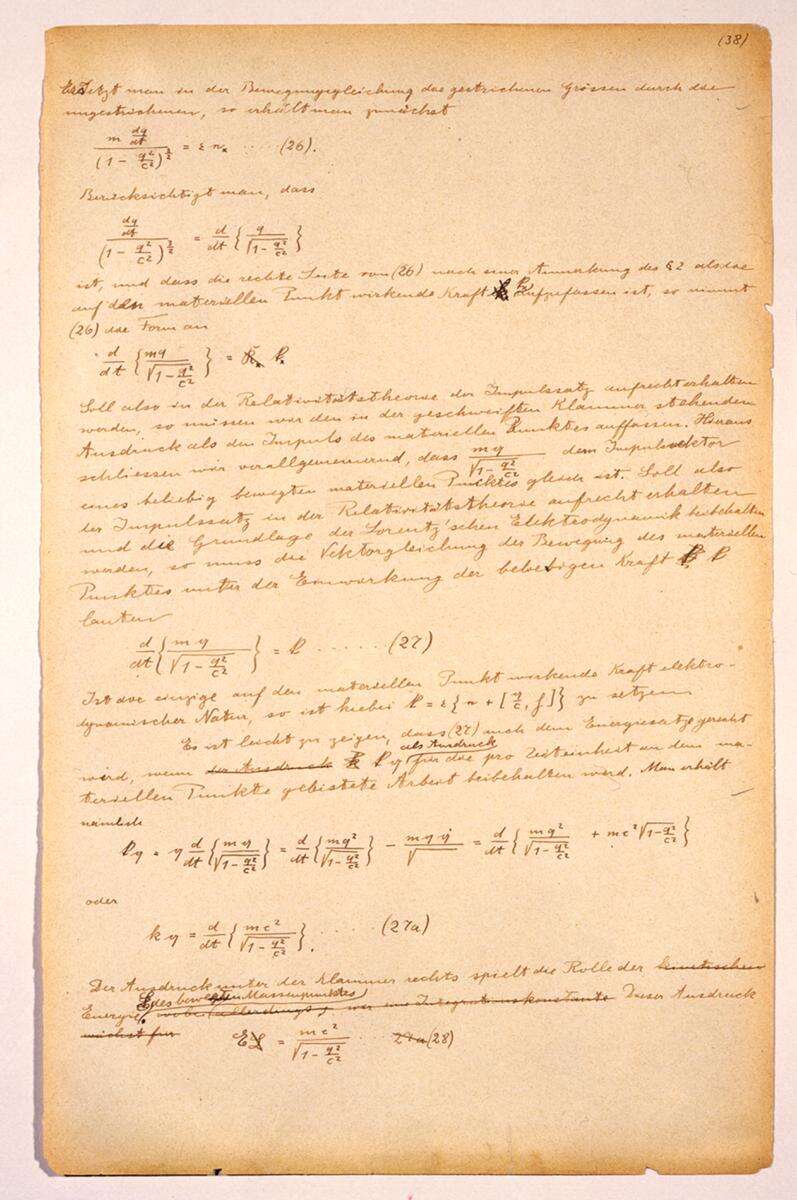 (38)
Ersetzt man in der Bewegungsgleichung das gestrichenen Grössen durch die
ungestrichenen, so erhält man zunächst
m dq/dt / (1 - q²/c²)^3/2 = ε n_x ..... (26).
Berücksichtigt man, dass
dq/dt / (1 - q²/c²)^3/2 = d/dt { q / √(1 - q²/c²) }
ist, und dass die rechte Seite von (26) nach einer Anmerkung des § 2 als die
auf den materiellen Punkt wirkende Kraft aufzufassen ist, so nimmt
(26) die Form an
d/dt { mq / √(1 - q²/c²) } = k_x
Soll also in der Relativitätstheorie der Impulssatz aufrecht erhalten
werden, so müssen wir den in der geschweiften Klammer stehenden
Ausdruck als den Impuls des materiellen Punktes auffassen. Hieraus
schliessen wir verallgemeinernd, dass m𝔮 / √(1 - q²/c²) dem Impulsvektor
eines beliebig bewegten materiellen Punktes gleich ist. Soll also
der Impulssatz in der Relativitätstheorie aufrecht erhalten
und die Grundlage der Lorentz'schen Elektrodynamik beibehalten
werden, so muss die Vektorgleichung der Bewegung des materiellen
Punktes unter der Einwirkung der beliebigen Kraft 𝔨
lauten
d/dt { m𝔮 / √(1 - q²/c²) } = 𝔨 ...... (27)
Ist die einzige auf den materiellen Punkt wirkende Kraft elektro-
dynamischer Natur, so ist hiebei 𝔨 = ε { n + [𝔮/c, f] } zu setzen.
Es ist leicht zu zeigen, dass (27) auch dem Energiesatz gerecht
als Ausdruck
wird, wenn der Ausdruck 𝔨𝔮 für die pro Zeiteinheit an dem ma-
teriellen Punkte geleistete Arbeit beibehalten wird. Man erhält
nämlich
𝔨𝔮 = 𝔮 d/dt { m𝔮 / √(1 - q²/c²) } = d/dt { mq² / √(1 - q²/c²) } - m𝔮𝔮̇ / √ = d/dt { mq² / √(1 - q²/c²) + mc² √(1 - q²/c²) }
oder
𝔨𝔮 = d/dt { mc² / √(1 - q²/c²) } ..... (27a)
Der Ausdruck unter der Klammer rechts spielt die Rolle der kinetischen
E des bewegten Massenpunktes
Energie, wobei (allerdings) nur eine Integrationskonstante Dieser Ausdruck
wächst für
EL = mc² / √(1 - q²/c²) .. 27a (28)